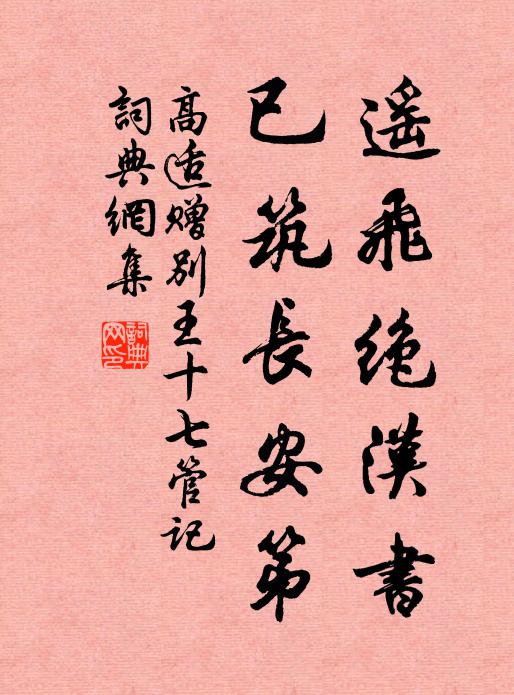 遥飛絶漢書
已筑長安第
高适贈别王十七管记
詞典網集
詞典网印